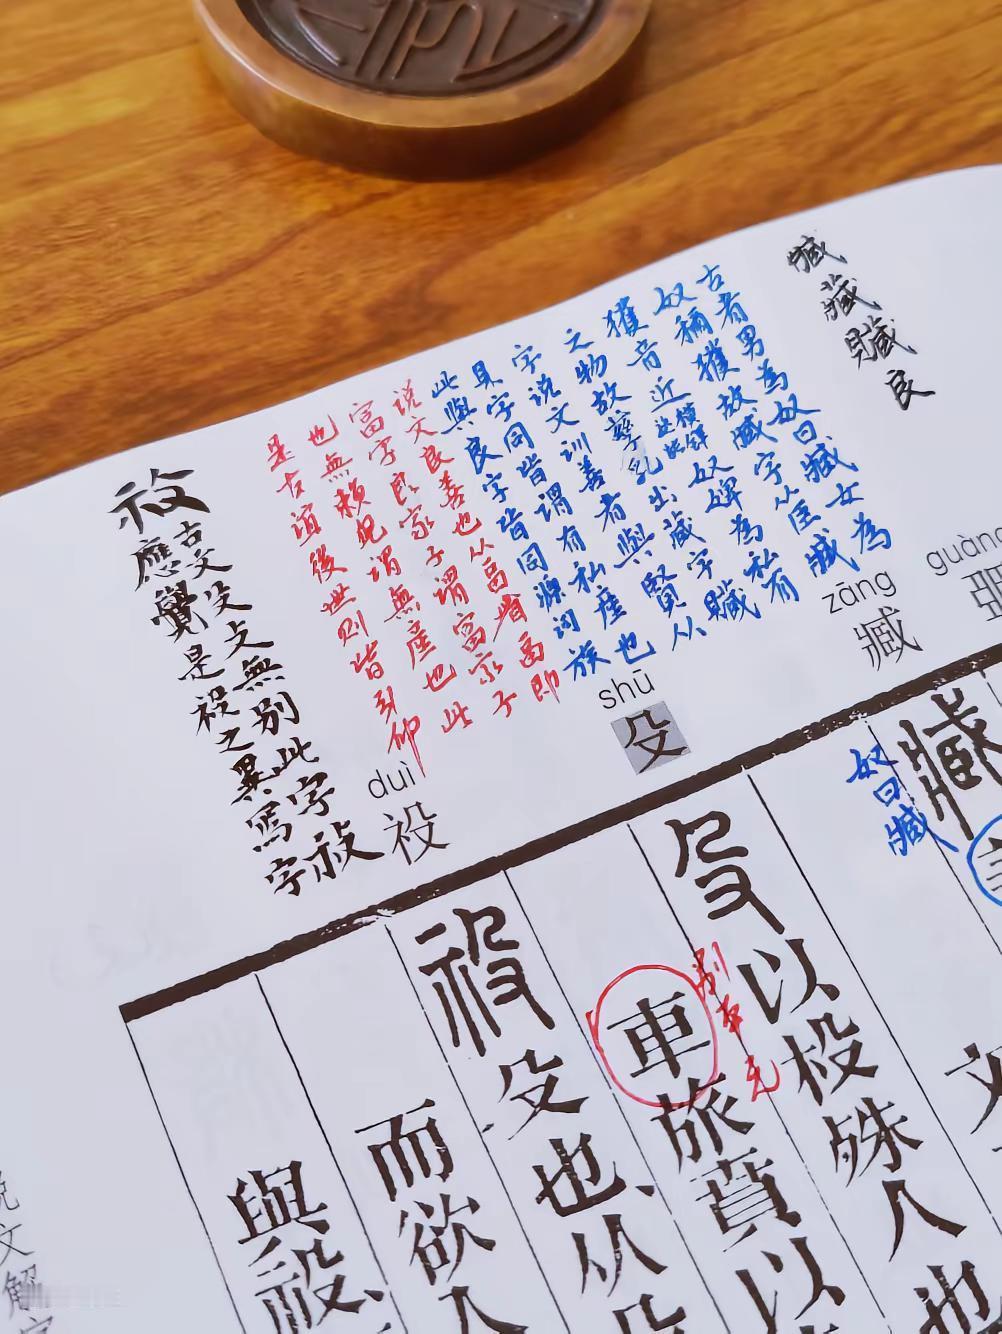 臧藏贓良
古者男為奴曰臧女為
奴稱獲故臧字从臣臧
獲音近奴婢為私有
之物故孳乳出藏字贓
字说文训善者與賢从
貝字同皆谓有私產也
此與良字皆同源词族
说文良善也从畗省畗即
富字良家子谓富家子
也無赖谓無產也此
是古谊後世则皆引伸
古文殳攴無別此字
應覺是祋之異寫字
guàng
zāng
臧
shū
殳
duì
祋
臧
奴曰臧
殳以杸殊人也
別本无
車旅賁以
祋殳也从
而欲
與祋
说文解